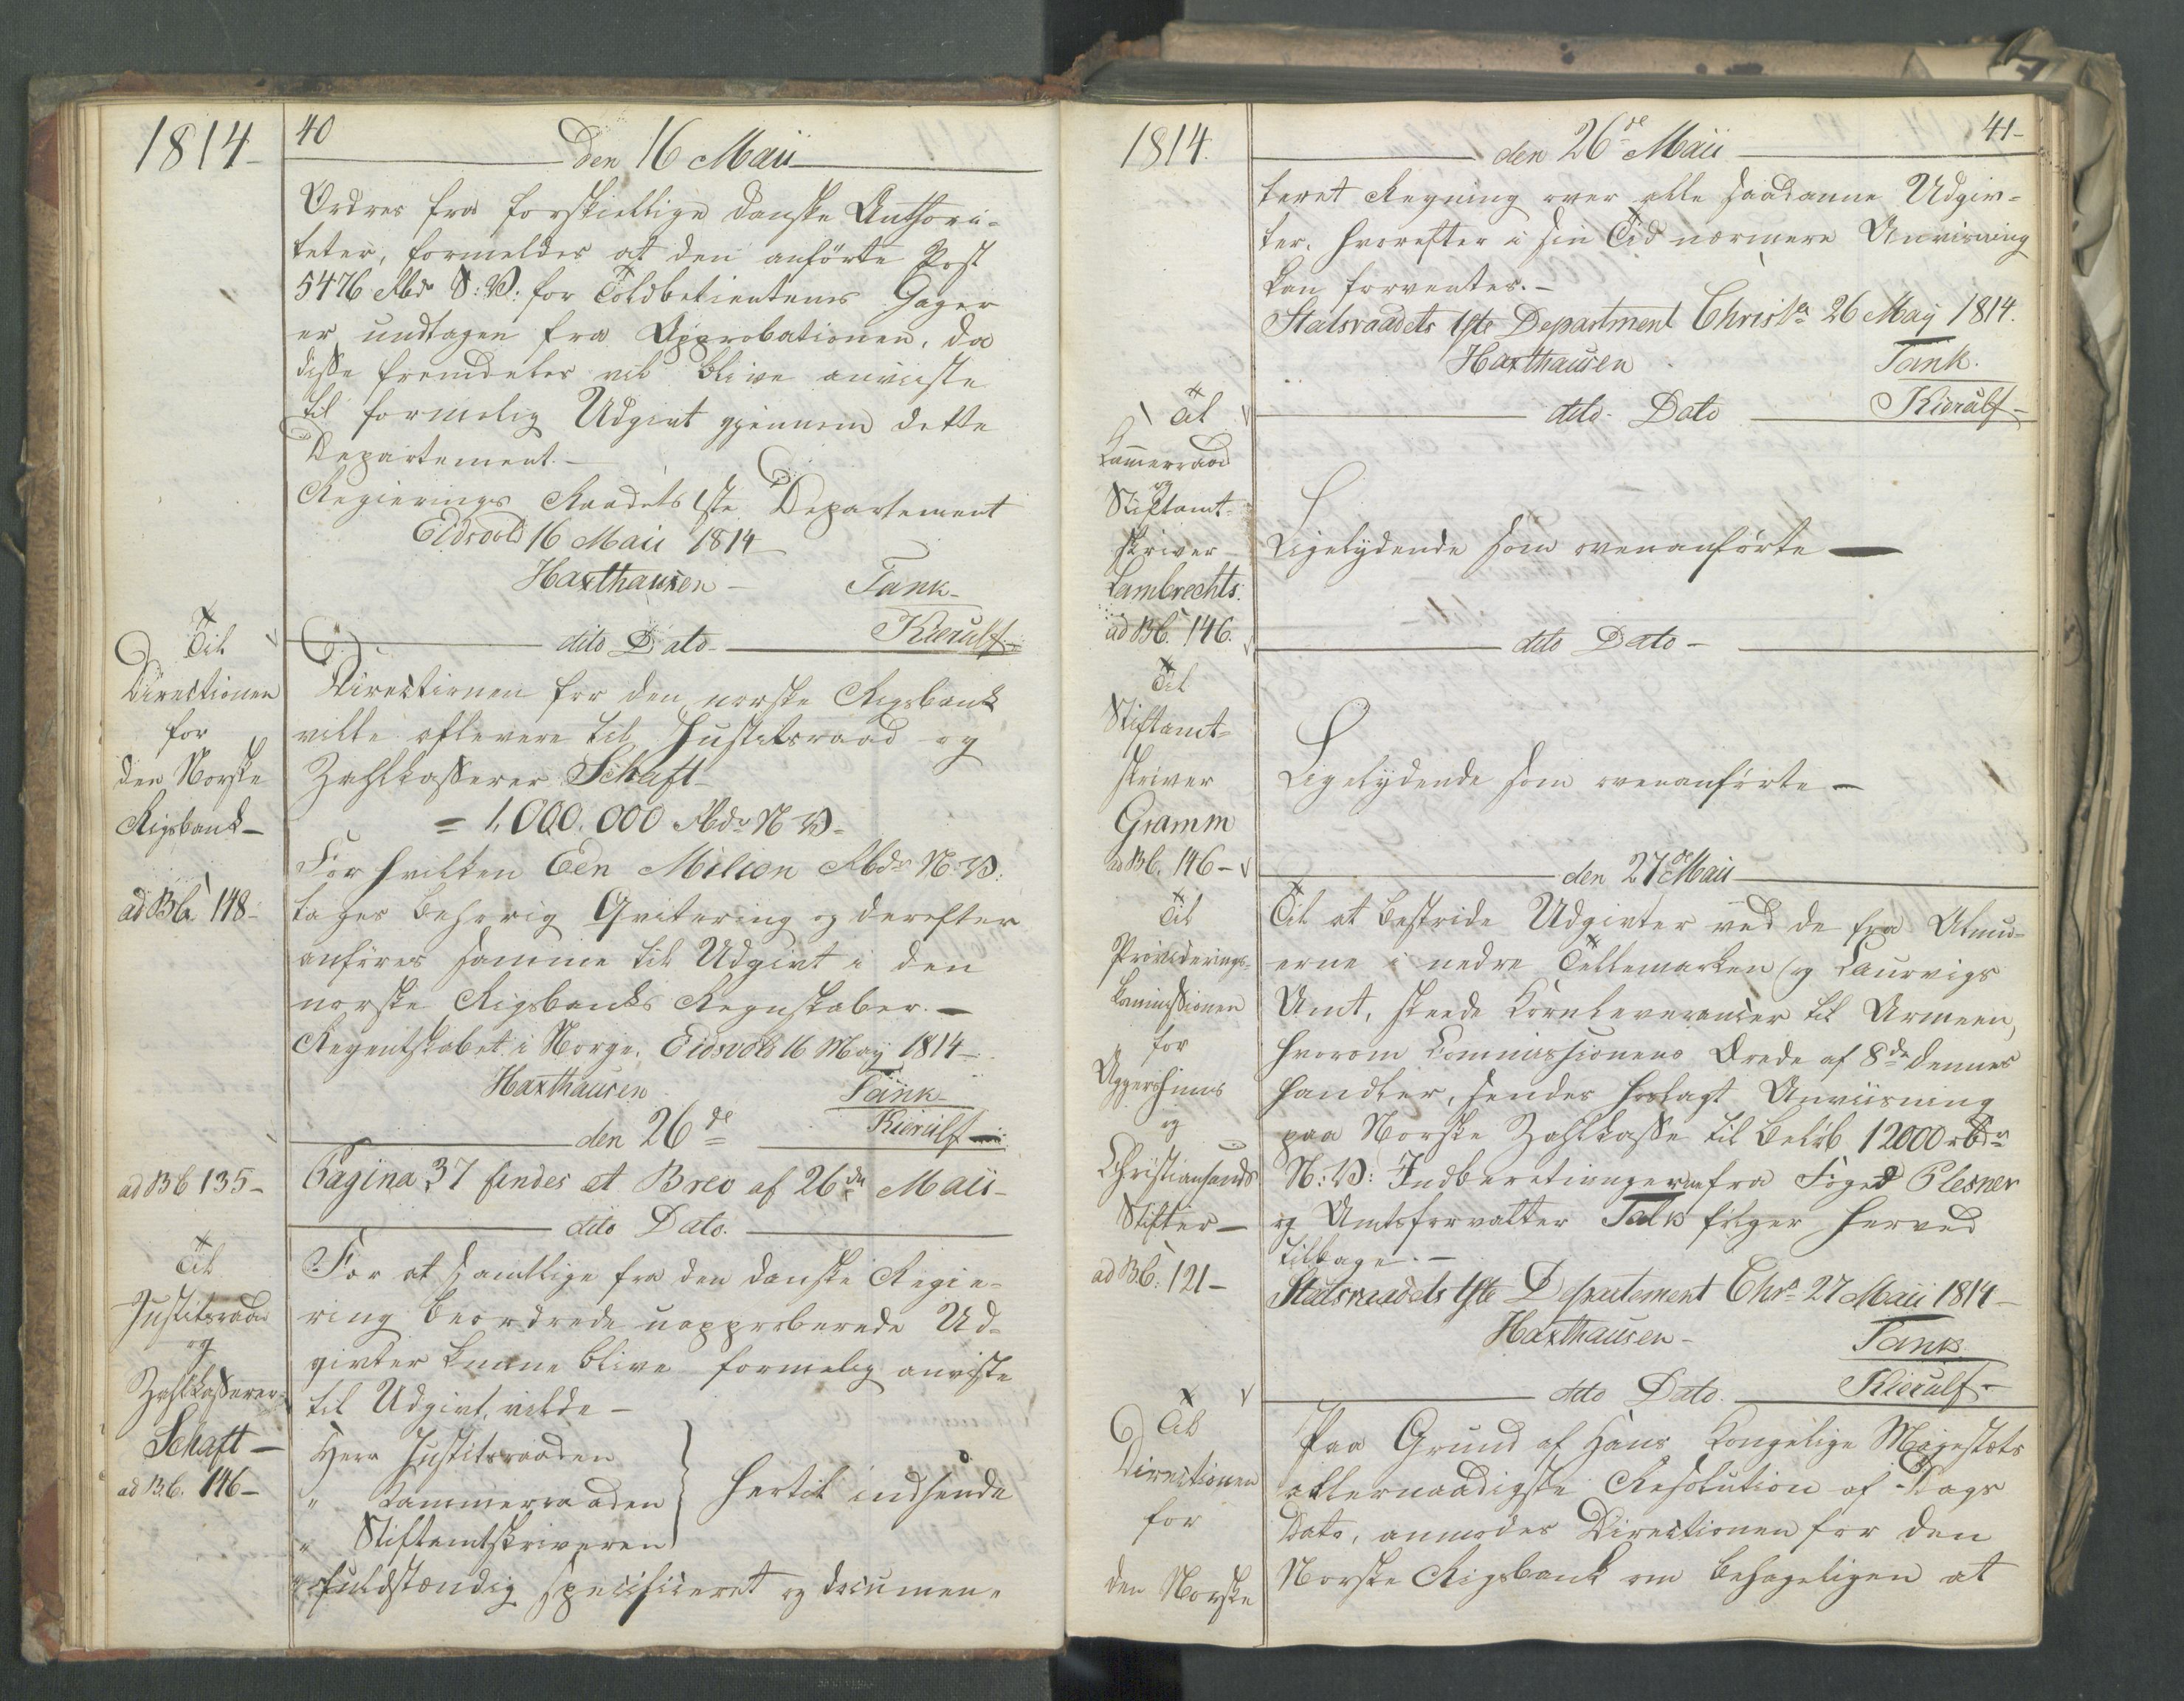 1814-
40
Den 16 Maii
Ordres fra forskiellige danske Authori-
teter, formeldes at den anförte Post
5476 Rbd S: V: for Toldbetienternes Gager
er undtagen fra Approbationen, da
disse fremdeles vil blive anviiste
til formelig Udgivt gjennem dette
Departement.-
Regierings Raadets 1ste Departement
Eidsvold 16 Maii 1814
Haxthausen - Tank-
Kierulf-
Til
Directionen
for
den Norske
Rigsbank-
ad Bb. 148-
dito Dato-
Directionen for den norske Rigsbank
ville aflevere til Justitsraad og
Zahlkasserer Schaft-
= 1,000,000 Rbdr N V-
For hvilken Een Milion Rbdr N: V:
tages behørig Qvitering og derefter
anföres samme til Udgivt i den
norske Rigsbanks Regnskaber.-
Regentskabet i Norge. Eidsvold 16 May 1814-
Haxthausen Tank-
Kierulf-
den 26de
ad Bb 135-
Pagina 37 findes et Brev af 26de Maii-
dito Dato.
Til
Justitsraad
og
Zahlkasserer
Schaft-
ad Bb. 146-
For at samtlige fra den danske Regie-
ring beordrede uapproberede Ud-
givter kunne blive formelig anviste
til Udgivt, vilde-
Herr Justitsraaden
" Kammerraaden
" Stiftamtskriveren
hertil indsende
fuldstændig specificeret og documen-
1814.
41-
den 26de Maii
teret Regning over alle saadanne Udgiv-
ter, hvorefter i sin Tid nærmere Anviisning
kan forventes.-
Statsraadets 1ste Department Christa 26 May 1814.
Haxthausen Tank.
Kierulf-
Til
Kammerraad
og
Stiftamt-
skriver
Lambrechts
ad Bb. 146.
dito Dato
Ligelydende som ovenanförte-
dito Dato-
Til
Stiftamt-
skriver
Gramm
ad Bb. 146-
Ligelydende som ovenanförte-
den 27de Maii
Til
Provideerings-
Commissionen
for
Aggershuus
og
Christiansands
Stifter-
ad Bb. 121-
Til at bestride Udgivter ved de fra Almu-
erne i nedre Tellemarken og Laurvigs
Amt, skeede Kornleverancer til Armeen,
hvorom Commissionens Brede af 8de dennes
handler, sendes hoslagt Anviisning
paa Norske Zahlkasse til Beløb 12000 rbdr
N: V: Indberetningerne fra Foged Plesner
og Amtsforvalter Falk følger herved
tilbage.-
Statsraadets 1ste Departement Chra 27 Maii 1814-
Haxthausen- Tank
Kierulf-
dito Dato.
Til
Directionen
for
den Norske
Paa Grund af Hans Kongelige Majestæts
allernaadigste Resolution af Dags
Dato, anmodes Directionen for den
Norske Rigsbank om behageligen at